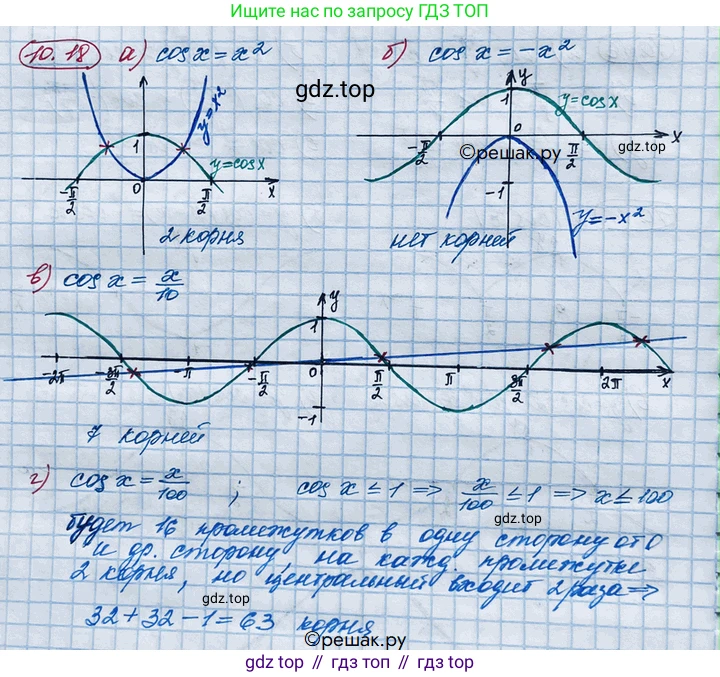 Ищите ответы по запросу ГДЗ ТОП
10.18 а) cos x = x² б) cos x = -x²
gdz.top
y=x²
1
y=cos x
-π/2 0 π/2 x
2 корня
y
1
y=cosx
0 x
-π/2 π/2
gdz.top
©решак.ру
-1
y=-x²
нет корней
в) cos x = x/10
y
1
-2π -3π/2 -π -π/2 0 π/2 π 3π/2 2π x
-1
7 корней
г) cos x = x/100 ; cos x ≤ 1 => x/100 ≤ 1 => x ≤ 100
будет 16 промежутков в одну сторону от 0
и др. сторону, на кажд. промежутке
2 корня, но центральный входит 2 раза =>
gdz.top
32 + 32 - 1 = 63 корня
©решак.ру
gdz top // гдз топ // gdz.top // гдз.топ